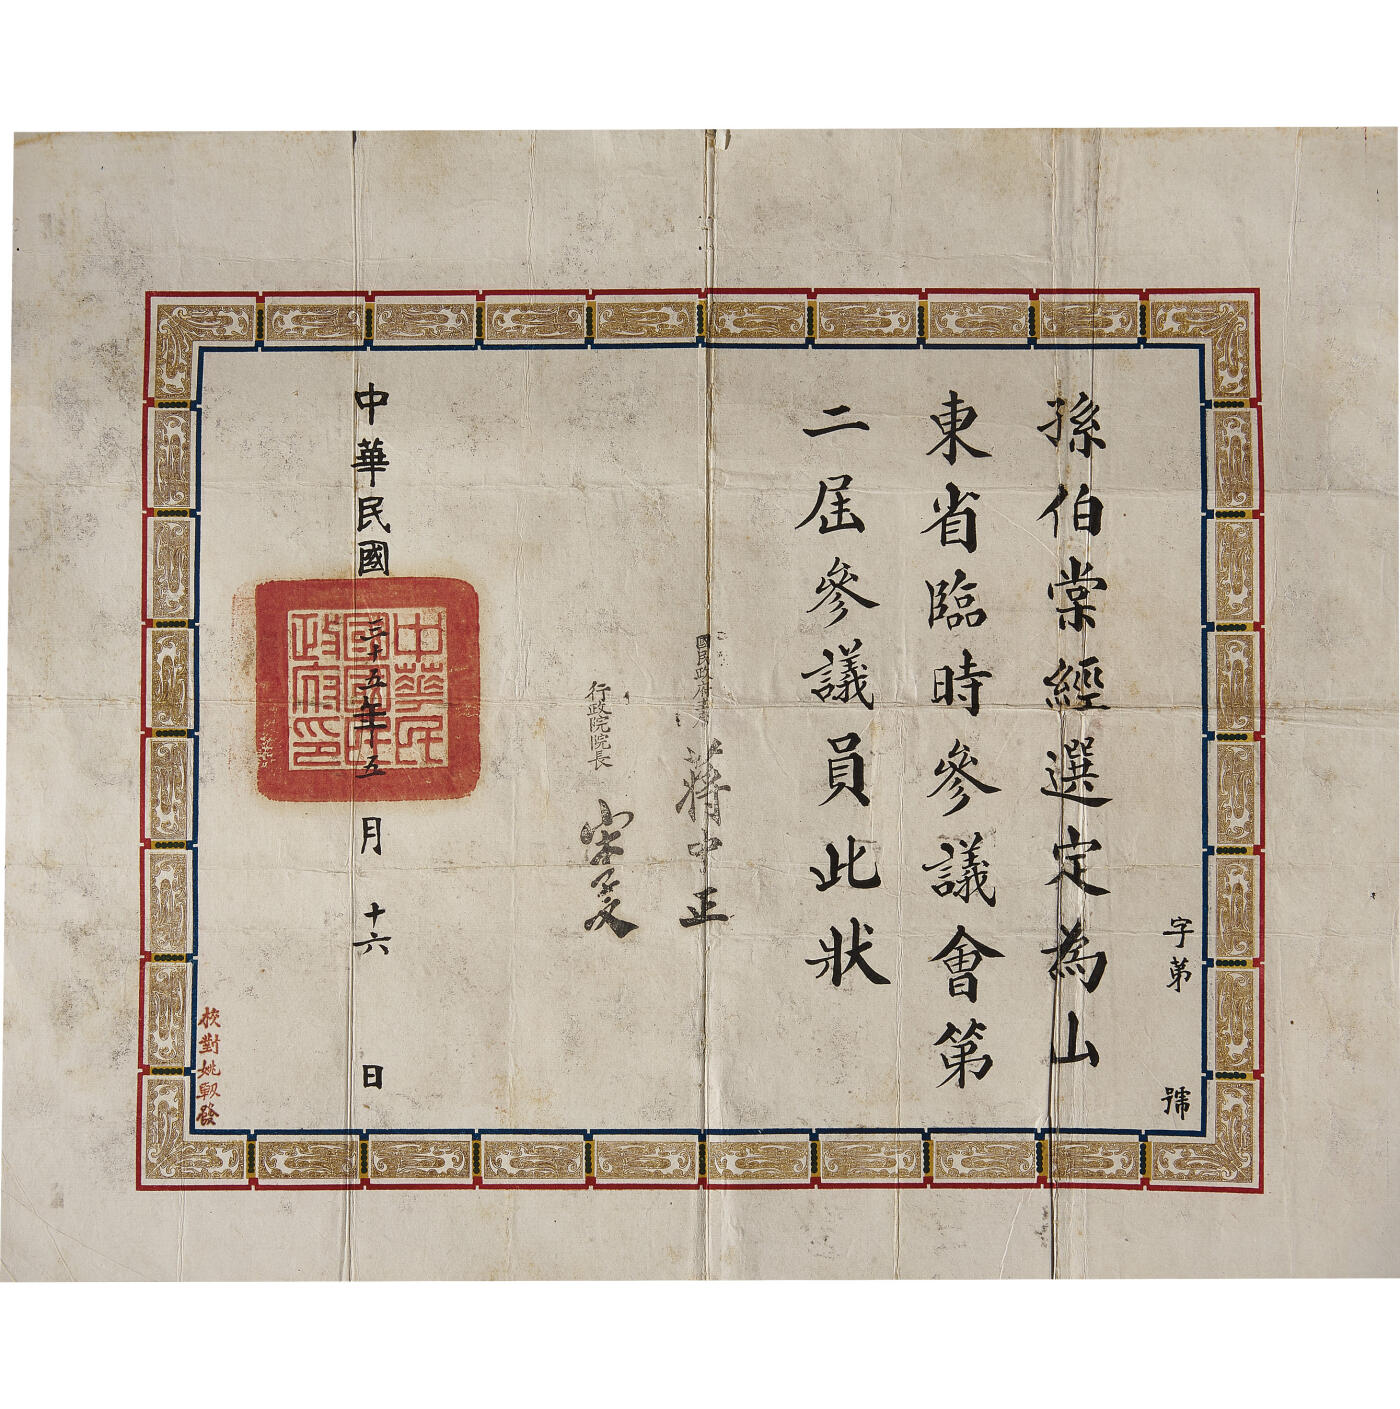 字第 號
孫伯棠經選定為山
東省臨時參議會第
二屆參議員此狀
國民政府主席 蔣中正
行政院院長 宋子文
中華民國三十五年五月十六日
中華民
國國民
政府印
校對姚